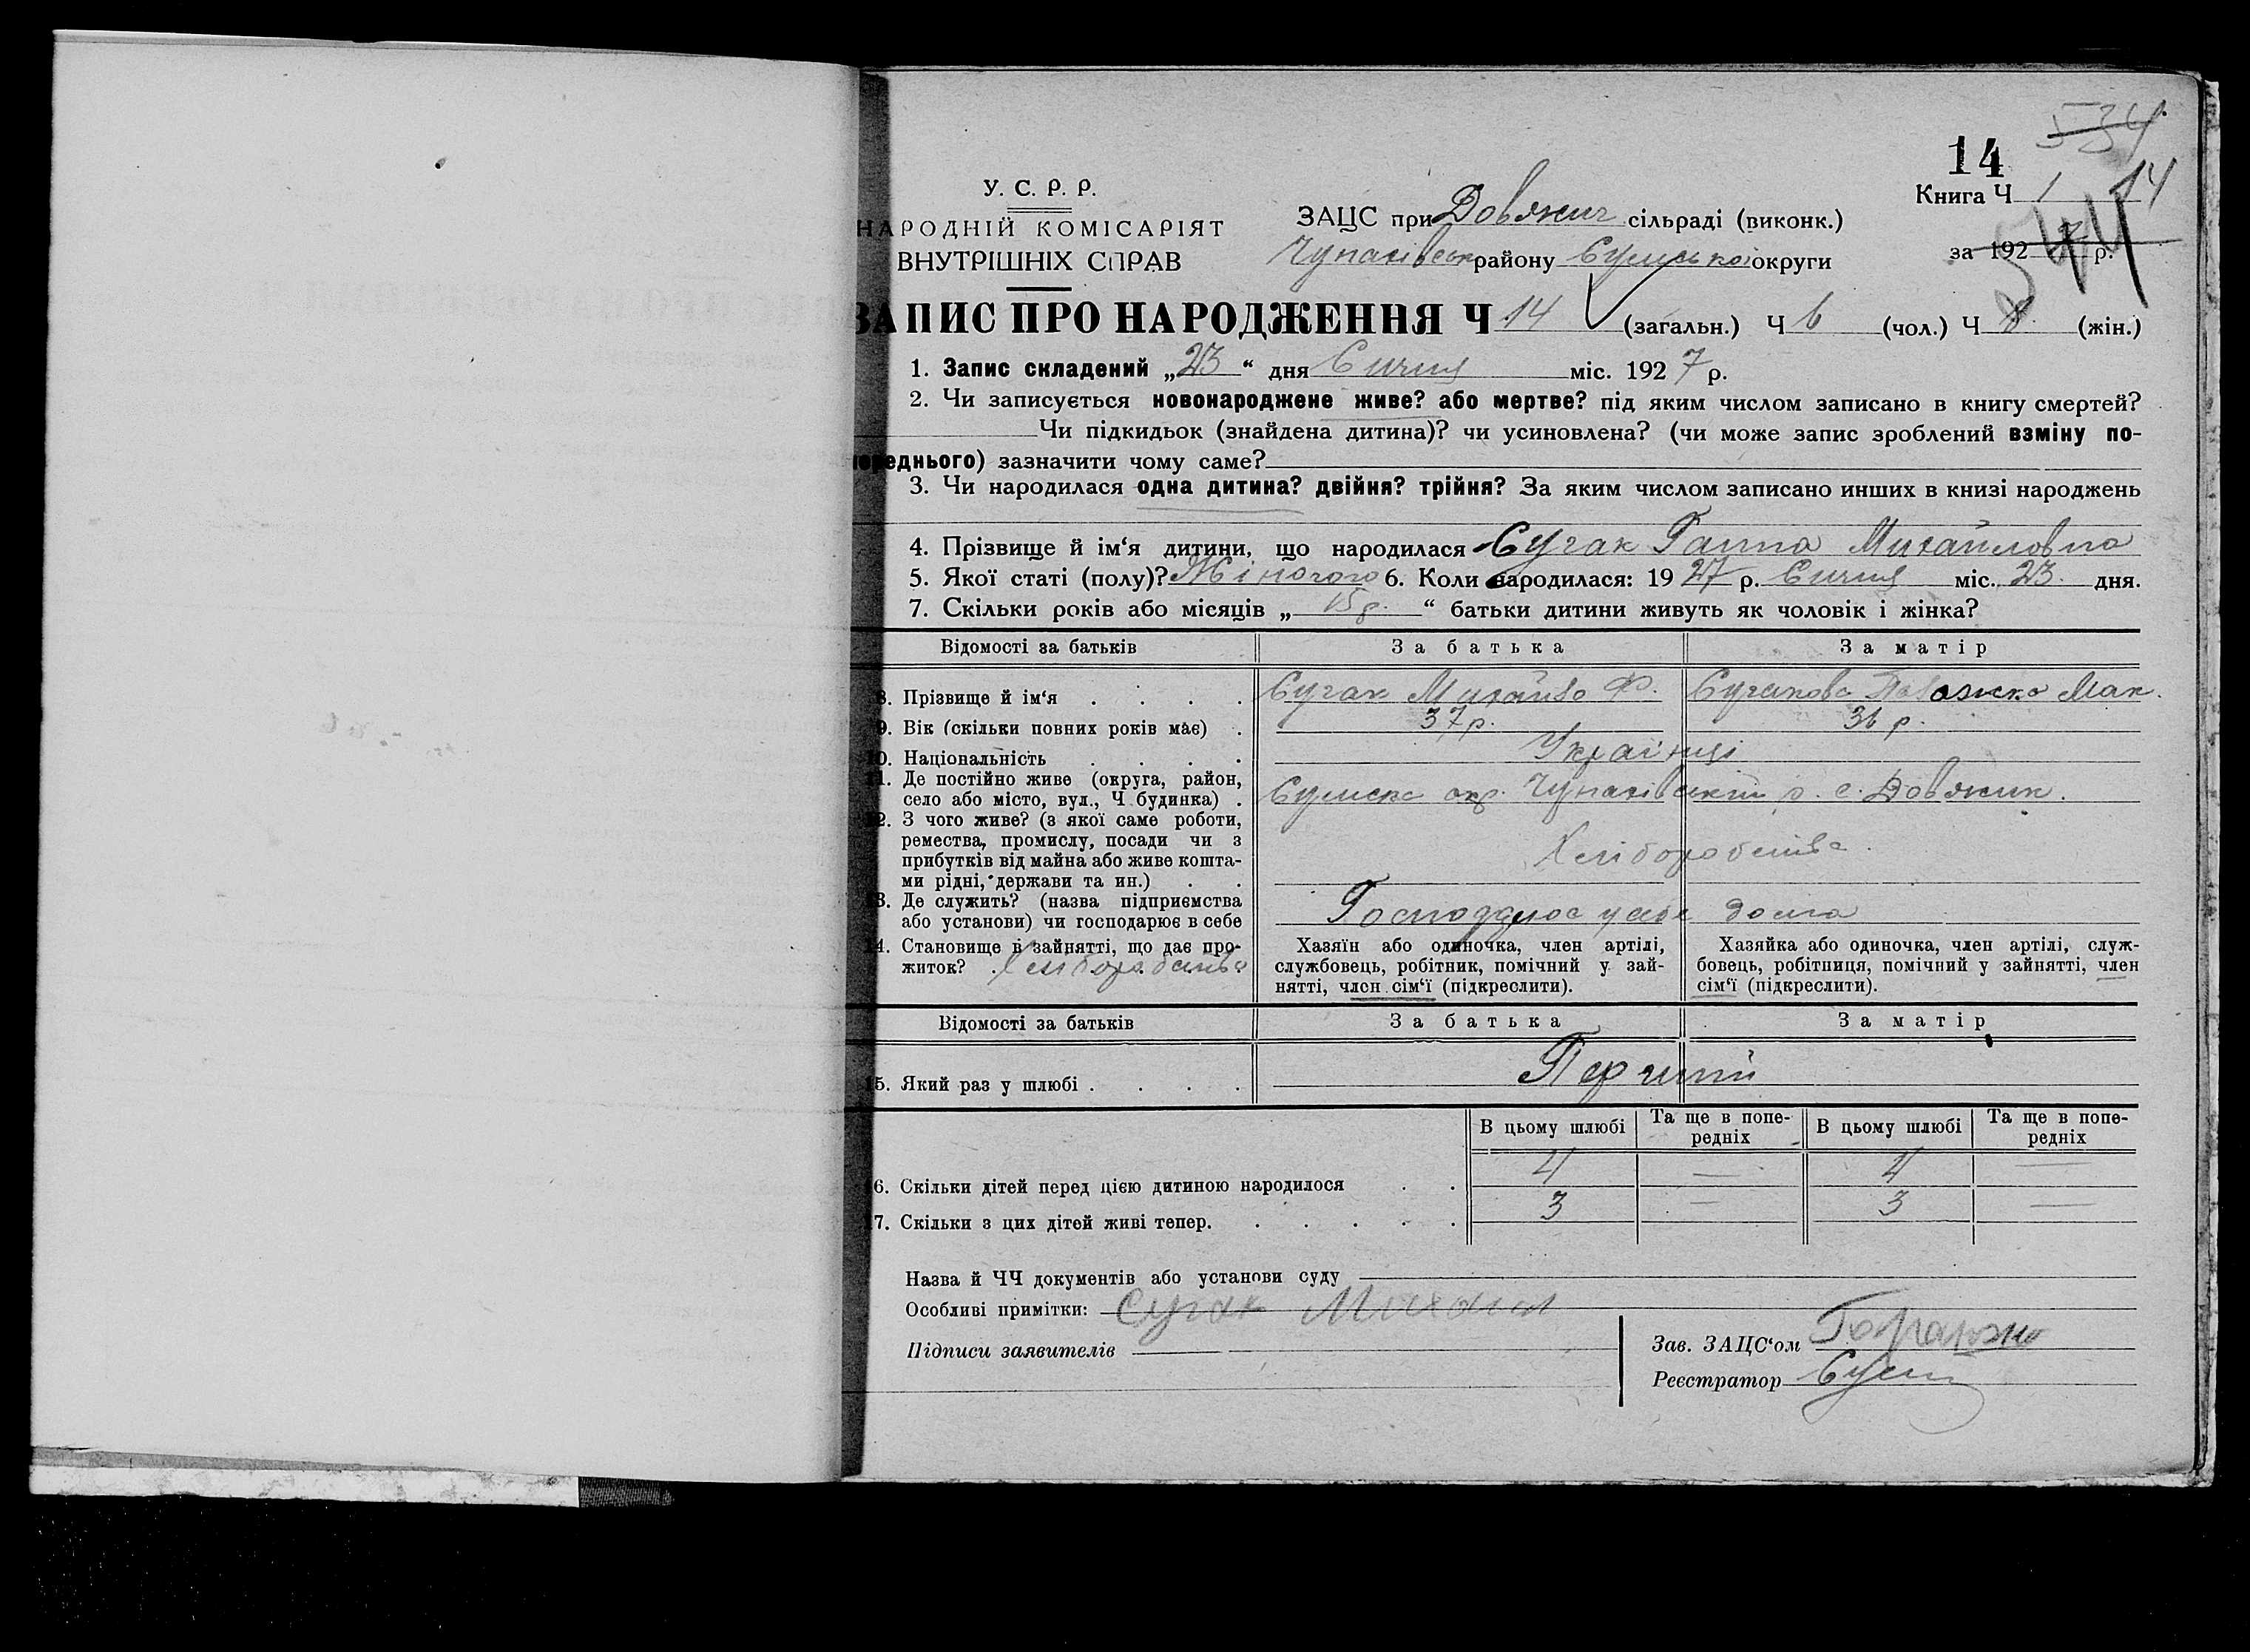 534
14
14
Книга Ч 1
544
за 1927 р.
У. С. Р. Р.
НАРОДНІЙ КОМІСАРІЯТ
ВНУТРІШНІХ СПРАВ
ЗАЦС при Довжич сільраді (виконк.)
Чупахівськ району Сумської округи
ЗАПИС ПРО НАРОДЖЕННЯ Ч 14 (загальн.) Ч 6 (чол.) Ч 8 (жін.)
1. Запис складений „23“ дня Січня міс. 1927 р.
2. Чи записується новонароджене живе? або мертве? під яким числом записано в книгу смертей?
Чи підкидьок (знайдена дитина)? чи усиновлена? (чи може запис зроблений взміну по-
переднього) зазначити чому саме?
3. Чи народилася одна дитина? двійня? трійня? За яким числом записано инших в книзі народжень
4. Прізвище й ім‘я дитини, що народилася Сугак Ганна Михайловна
5. Якої статі (полу)? Жіночого 6. Коли народилася: 1927 р. Січня міс. 23 дня.
7. Скільки років або місяців „15 р.“ батьки дитини живуть як чоловік і жінка?
Відомості за батьків За батька За матір
8. Прізвище й ім‘я . . . . Сугак Михайло Ф. Сугакова Мак.
9. Вік (скільки повних років має) . 37 р. 36 р.
10. Національність . . . . Українці
11. Де постійно живе (округа, район,
село або місто, вул., Ч будинка) . Сумска окр. Чупахівський р. с. Довжик.
12. З чого живе? (з якої саме роботи,
ремества, промислу, посади чи з
прибутків від майна або живе кошта-
ми рідні, держави та ин.) . . Хліборобства.
13. Де служить? (назва підприємства
або установи) чи господарює в себе Господарює у себе дома
14. Становище в зайнятті, що дає про-
житок? . Хліборобства
Хазяїн або одиночка, член артілі,
службовець, робітник, помічний у зай-
нятті, член сім‘ї (підкреслити).
Хазяйка або одиночка, член артілі, служ-
бовець, робітниця, помічний у зайнятті, член
сім‘ї (підкреслити).
Відомості за батьків За батька За матір
15. Який раз у шлюбі . . . . Перший
В цьому шлюбі Та ще в попе-редніх В цьому шлюбі Та ще в попе-редніх
16. Скільки дітей перед цією дитиною народилося . . 4 — 4 —
17. Скільки з цих дітей живі тепер. . . . . . 3 — 3 —
Назва й ЧЧ документів або установи суду
Особливі примітки: Сугак Михаил
Підписи заявителів
Зав. ЗАЦС‘ом
Реєстратор